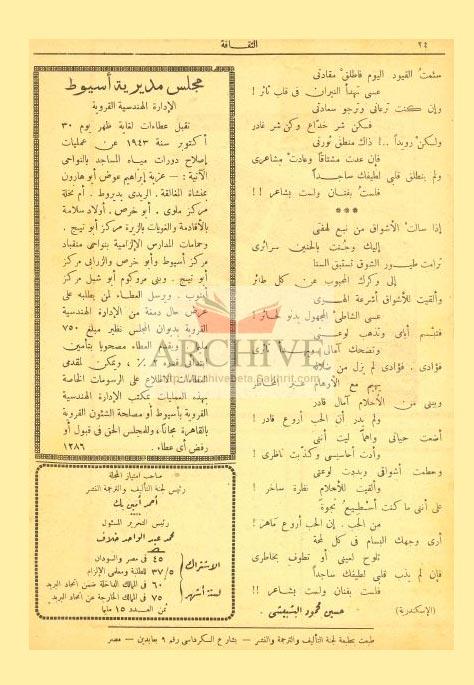 ٢٤
الثقافة
سئمتُ القيود اليوم فأطلقْ مقادتى
عسى تهدأ النيران فى قلب ثائر !
وإن كنت ترعانى وترجو سعادتى
فكن شر خدّاع وكن شر غادر
ولكنْ رويداً ..! ذاك منطق ثورتى
فإن عدت مشتاقاً وعادت مشاعرى
ولم ينطلق قلبى لطيفك ساجداً
فلستُ بفنان ولست بشاعر !!
***
إذا سالت الأشواق من نبع لهفتى
إليك وحنّت بالحنين سرائرى
ترامت طيور الشوق تستبق السنا
إلى وكرك المحبوب عن كل طائر
وألقيت للأشواق أشرعة الهوى
عسى الشاطئ المجهول يدنو لحائر !
فتبسم أيامى وتذهب لوعتى
وتضحك آمال
فؤادى . فؤادى لم يزل من
يهيم مع الأوهام عبر
ويبنى من الأحلام آمال قادر
ولم يدر أن الحب أروع قادر !
أضعت حياتى واهماً ليت أننى
وأدت أحاسيسى وكذّبت ناظرى !
وحطمت أشواقى وبددت لوعتى
وألقيت للأحلام نظرة ساخر !
على أننى ما كنت أسْطيعُ نجوة
من الحب . إن الحب أروع ماهر !
أرى وجهك البسام فى كل لمحة
تلوح لعينى أو تطوف بخاطرى
فإن لم يذب قلبى لطيفك ساجداً
فلست بفنان ولست بشاعر !!
(الإسكندرية) حسين محمود البشبيشى .
مجلس مديرية أسيوط
الإدارة الهندسية القروية
تقبل عطاءات لغاية ظهر يوم ٣٠
أكتوبر سنة ١٩٤٣ عن عمليات
إصلاح دورات مياه المساجد بالنواحى
الآتية : — عزبة إبراهيم عوض أبو هارون
بمنشاة المغالقة . الريدى بديروط . أم نخلة
مركز ملوى . أبو خرص . أولاد سلامة
بالأقادمة والغويات بالزرة مركز أبو تيج .
وحمامات المدارس الإلزامية بنواحى منقباد
مركز أسيوط وأبو خرص والزرابى مركز
أبو تيج . وبنى مر وكوم أبو شيل مركز
أبنوب . ويرسل العطاء لمن يطلبه على
عرض حال دمغة من الإدارة الهندسية
القروية بديوان المجلس نظير مبلغ ٧٥٠
مليم ويقدم العطاء مصحوبا بتأمين
ابتدائى قدره ٪ ، ويمكن لمقدمى
العطاءات الاطلاع على الرسومات الخاصة
بهذه العمليات بمكتب الإدارة الهندسية
القروية بأسيوط أو مصلحة الشئون القروية
بالقاهرة مجاناً، وللمجلس الحق فى قبول أو
رفض أى عطاء . ١٢٨٦
صاحب امتياز المجلة
رئيس لجنة التأليف والترجمة والنشر
أحمد أمين بك
رئيس التحرير المسئول
محمد عبد الواحد خلاف
الاشتراك لستة أشهر
٤٥ فى مصر والسودان
٣٧/٥ للطلبة ومعلمى الإلزام
٦٠ فى الممالك الداخلة ضمن اتحاد البريد
٧٥ فى الممالك الخارجة عن اتحاد البريد
ثمن العدد ١٥ مليما
طبعت بمطبعة لجنة التأليف والترجمة والنشر — بشارع الكرداسى رقم ٩ بعابدين — مصر
ARCHIVE
http://Archivebeta.Sakhrit.com